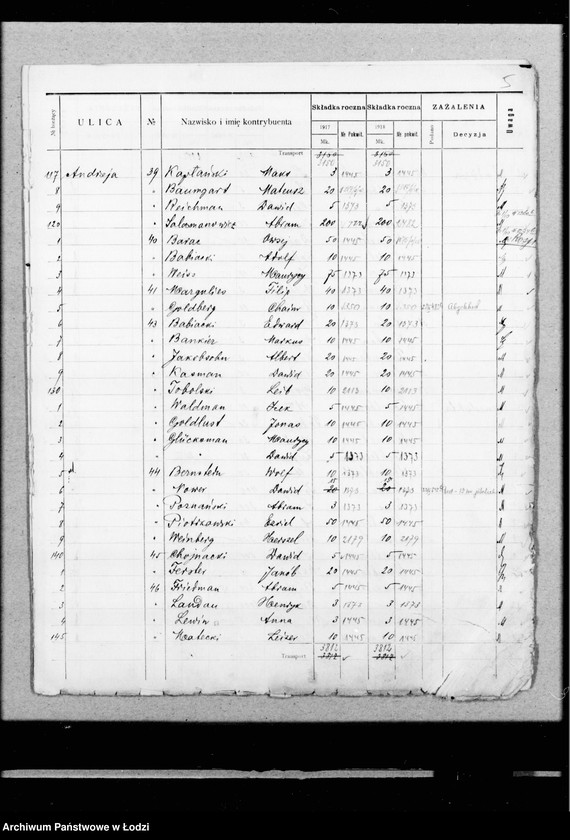 5
№ bieżący ULICA № Nazwisko i imię kontrybuenta Składka roczna Składka roczna ZAŻALENIA Uwaga
1917 Nr Pokwit. 1918 Nr pokwit. Podano Decyzja
Mk. Mk.
Transport 3150 3150
3150 3150
117 Andrzeja 39 Kapłański Maks 3 1445 3 1445
8 " Baumgart Mateusz 20 20
9 " Reichman Dawid 5 1373 5 1373
120 " Salomonowicz Abram 200 200
1 40 Barac Owsej 50 1445 50
2 " Babiacki Adolf 10 1445 10 1445
3 " Weiss Maurycy 75 1373 75 1373
4 41 Margulies Filip 40 1373 40 1373
5 " Goldberg Chaim 10 10
6 43 Babiacki Edward 20 1373 20 1373
7 " Bankier Markus 10 1445 10 1445
8 " Jakobsohn Albert 20 1445 20 1445
9 " Kasman Dawid 20 1445 20 1445
130 " Tobolski Leib 10 2013 10 2013
1 " Waldman Icek 5 1445 5 1445
2 " Goldlust Jonas 10 1445 10 1445
3 " Glücksman Maurycy 10 1445 10 1445
4 " " Dawid 5 1373 5 1373
5 44 Bernstein Wolf 10 1373 10 1373
6 " Nower Dawid 20 1373 20 1373
7 " Poznański Abram 3 1373 3 1373
8 " Piotrkowski Ezriel 50 1445 50 1445
9 " Weinberg Herszel 10 2079 10 2079
140 45 Chojnacki Dawid 5 1445 5 1445
1 " Forster Jakób 20 1445 20 1445
2 46 Friedman Abram 5 1445 5 1445
3 " Landau Henryk 3 1373 3 1373
4 " Lewin Anna 3 1445 3 1445
145 " Małecki Leizer 10 1445 10 1445
3812 3812
Transport
Archiwum Państwowe w Łodzi